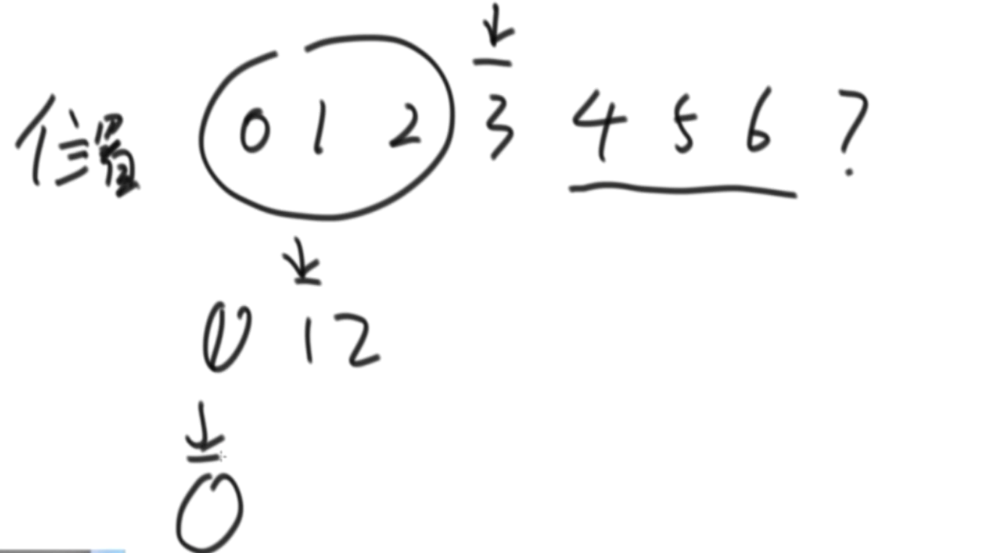 0 1 2 3 4 5 6 ?
0 1 2
0